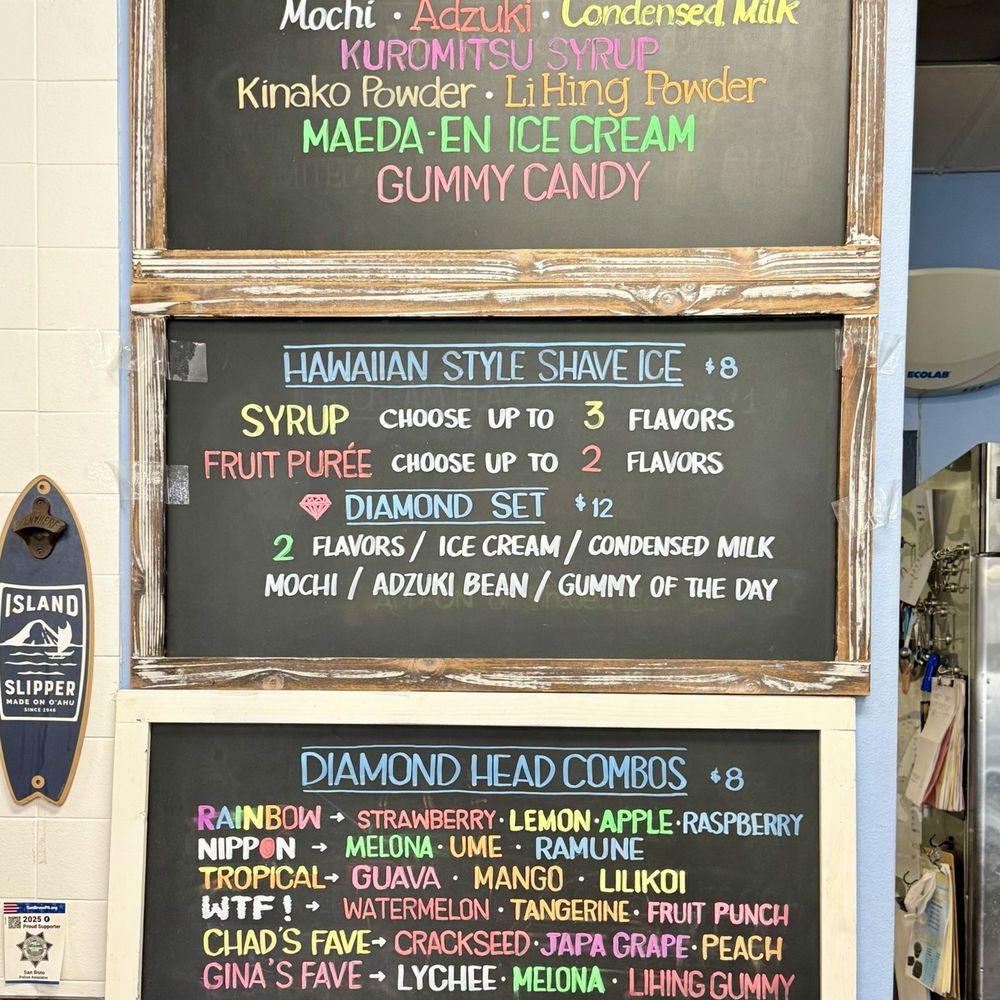 Mochi · Adzuki · Condensed Milk
KUROMITSU SYRUP
Kinako Powder · Li Hing Powder
MAEDA-EN ICE CREAM
GUMMY CANDY
HAWAIIAN STYLE SHAVE ICE $8
SYRUP CHOOSE UP TO 3 FLAVORS
FRUIT PURÉE CHOOSE UP TO 2 FLAVORS
DIAMOND SET $12
2 FLAVORS / ICE CREAM / CONDENSED MILK
MOCHI / ADZUKI BEAN / GUMMY OF THE DAY
DIAMOND HEAD COMBOS $8
RAINBOW → STRAWBERRY · LEMON · APPLE · RASPBERRY
NIPPON → MELONA · UME · RAMUNE
TROPICAL → GUAVA · MANGO · LILIKOI
WTF! → WATERMELON · TANGERINE · FRUIT PUNCH
CHAD'S FAVE → CRACKSEED · JAPA GRAPE · PEACH
GINA'S FAVE → LYCHEE · MELONA · LIHING GUMMY
ISLAND
SLIPPER
MADE ON O'AHU
SINCE 1946
ECOLAB
2025
Proud Supporter
San Bruno